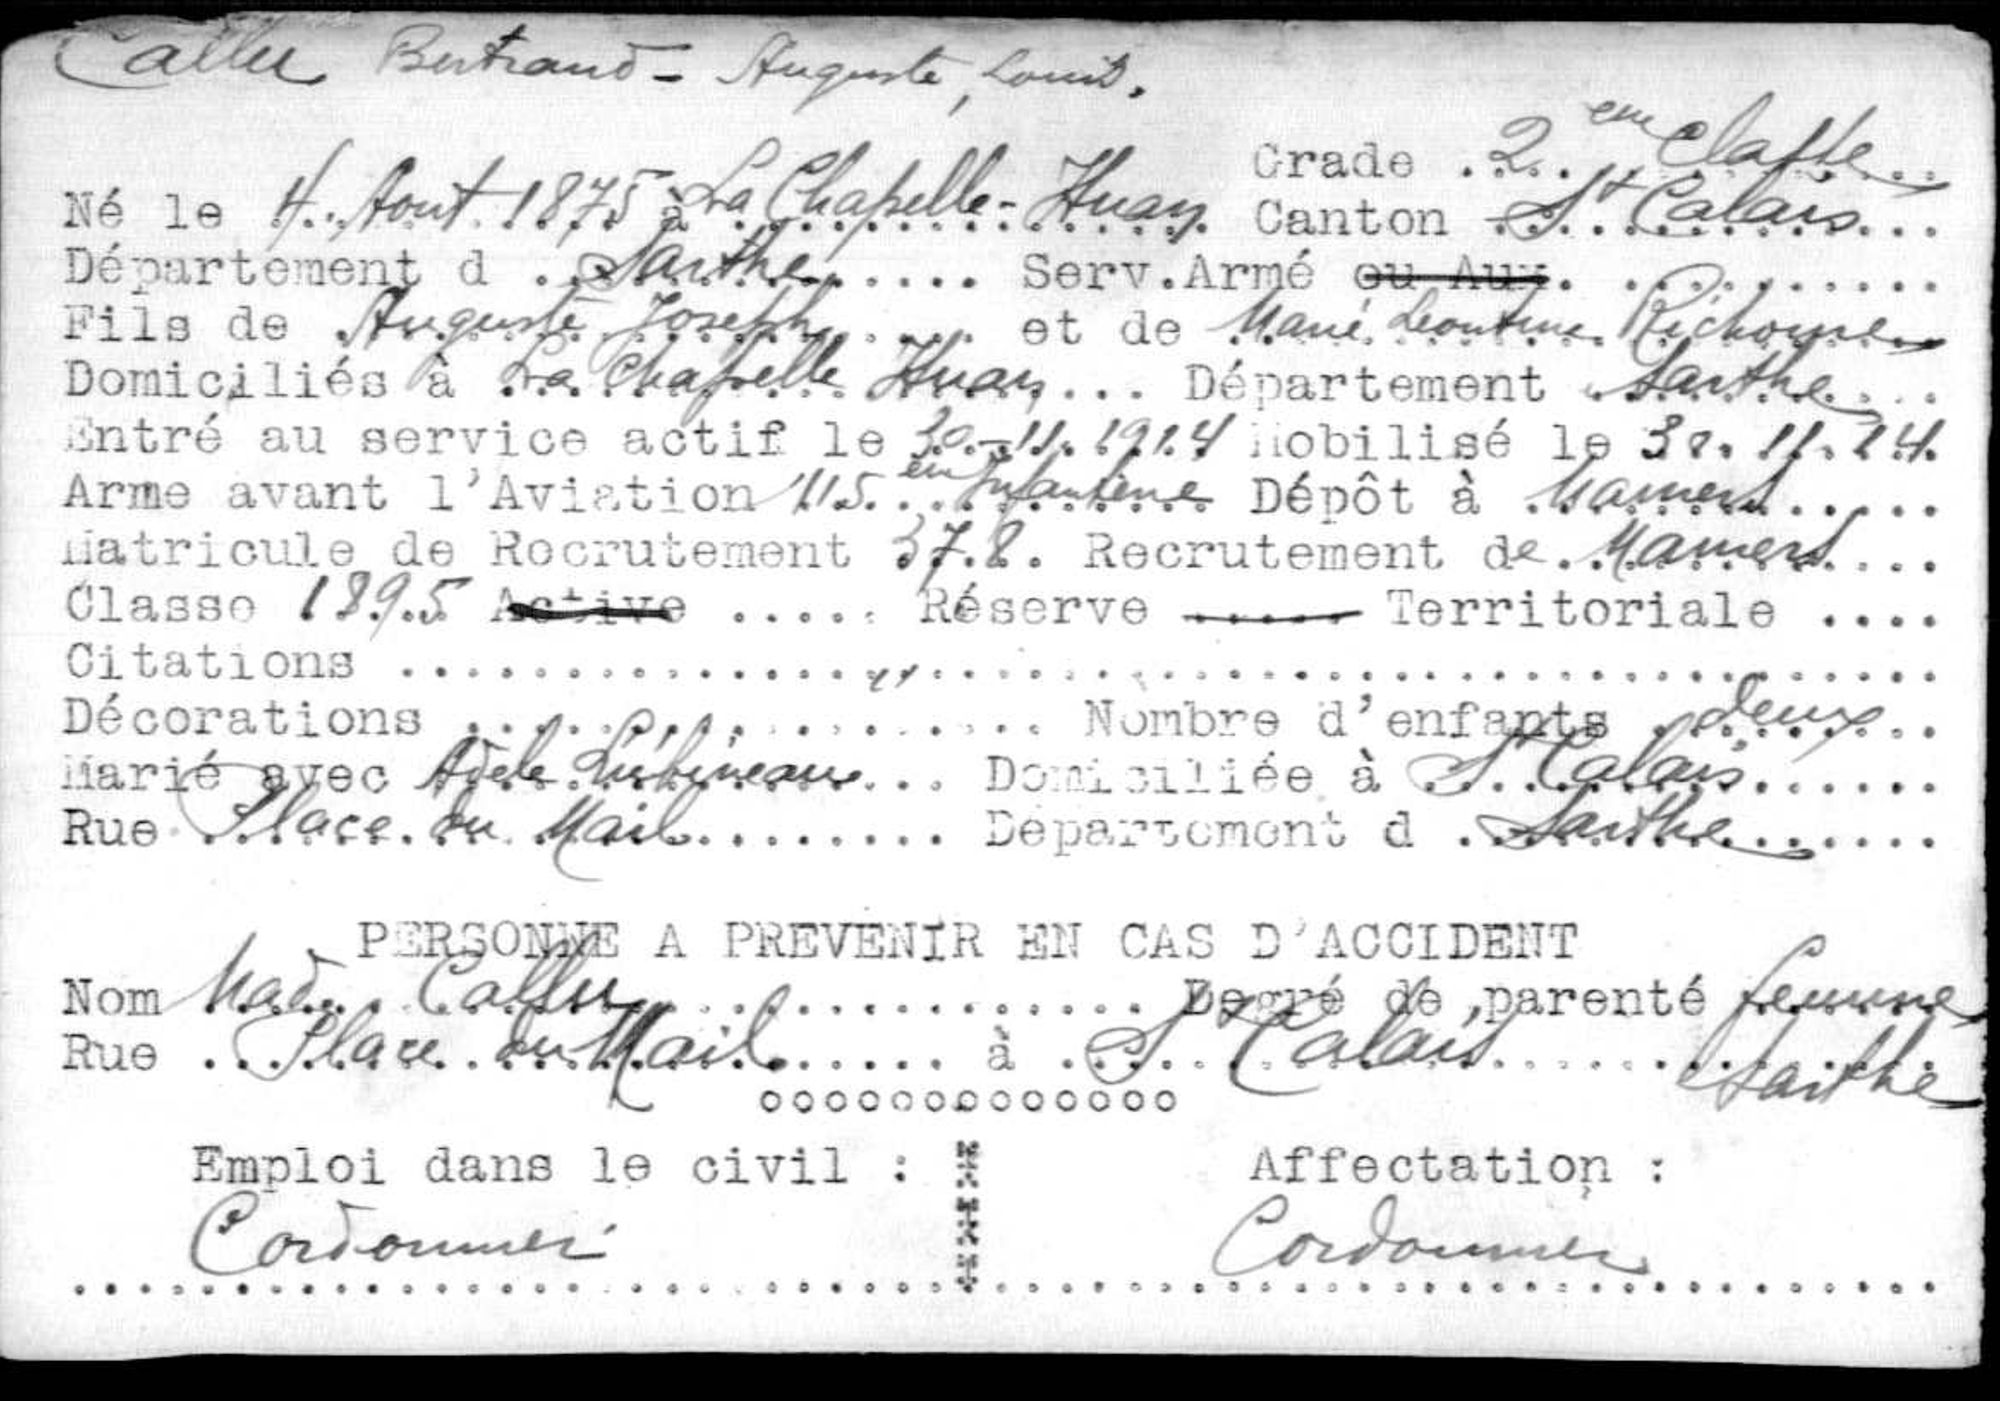 Callu Bertrand - Auguste, Louis.
Grade 2 eme Classe
Né le 4 Aout 1875 à La Chapelle-Huon Canton St Calais
Département d Sarthe Serv.Armé ou Aux.
Fils de Auguste Joseph et de Marie Leontine Richomme
Domiciliés à La Chapelle Huon Département Sarthe
Entré au service actif le 30-11-1914 Mobilisé le 30.11.14.
Arme avant l'Aviation 115 em Infanterie Dépôt à Mamers
Matricule de Recrutement 378. Recrutement de Mamers
Classe 1895 Active ..... Réserve ..... Territoriale ....
Citations
Décorations Nombre d'enfants deux
Marié avec Adele Domiciliée à St Calais
Rue Place du Mail Département d Sarthe
PERSONNE A PREVENIR EN CAS D'ACCIDENT
Nom Mad. Callu Degré de parenté femme
Rue Place du Mail à St Calais Sarthe
oooooooooooooo
Emploi dans le civil : Affectation :
Cordonnier Cordonnier